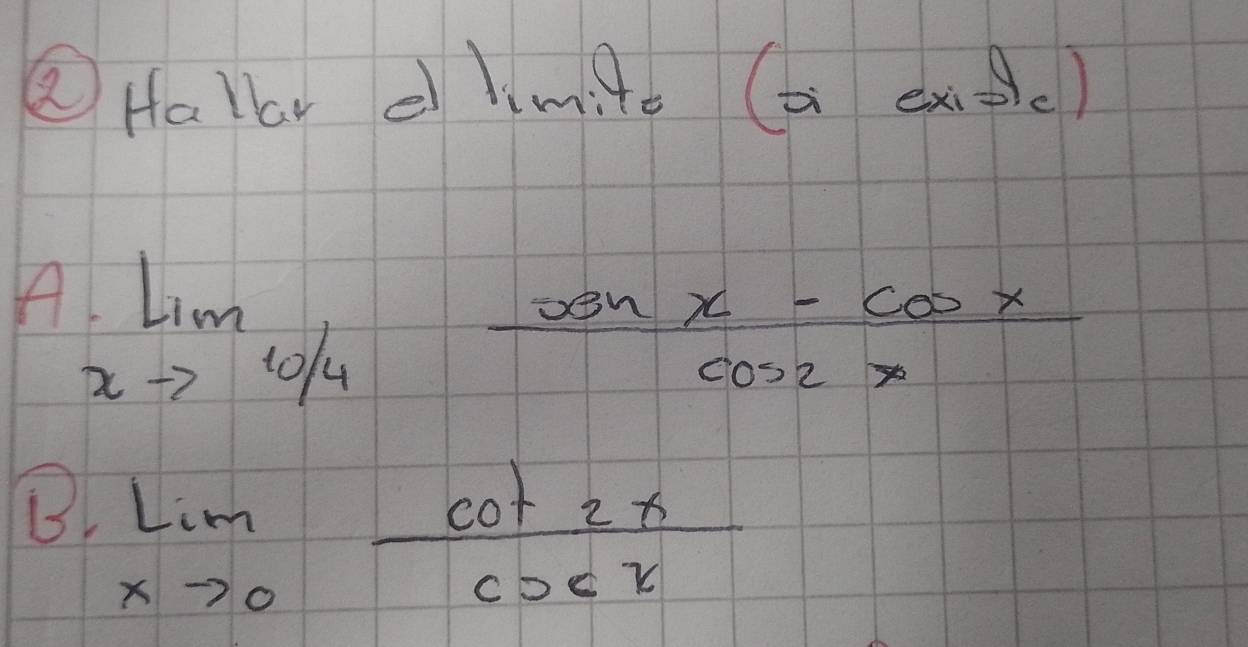 ② Hallar el limite (si existe)
A. Lim sen x - cos x
x → 10/4 cos2 x
B. Lim cot 2x
x → 0 csc x